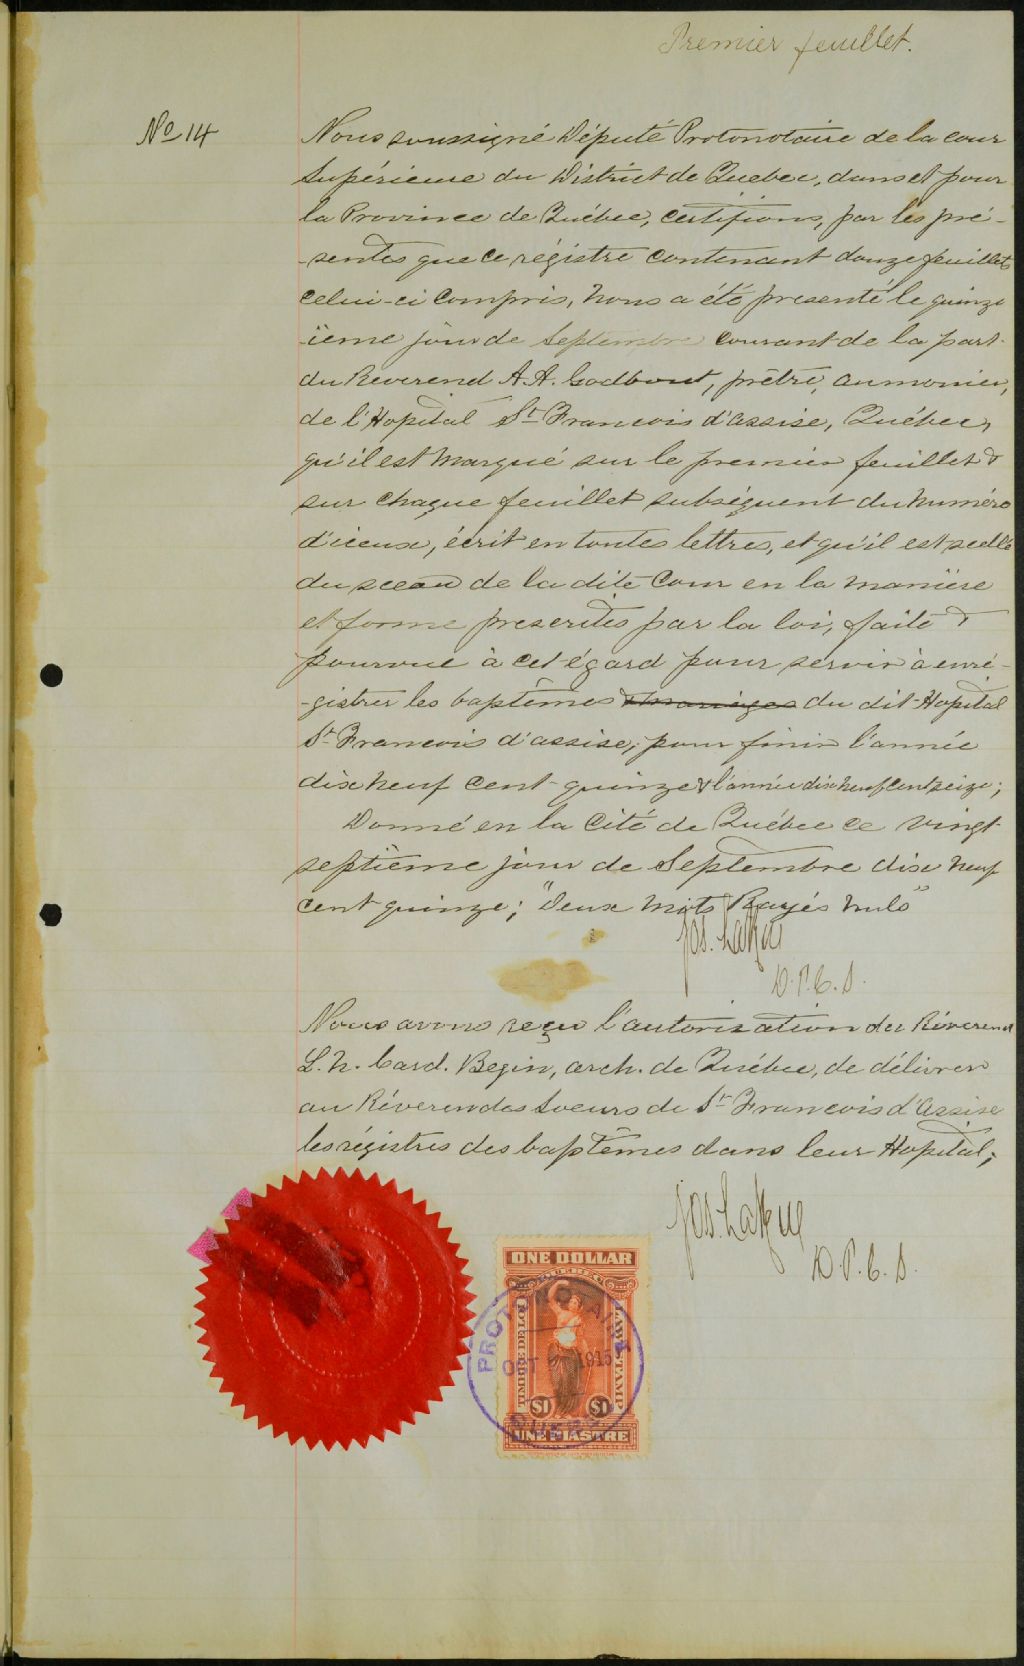 Premier feuillet.
No 14
Nous soussigné Député Protonotaire de la cour
Supérieure du District de Quebec, dans et pour
la Province de Québec, certifions, par les pré-
-sentes que ce régistre contenant douze feuillets
celui-ci compris, nous a été presenté le quinz
-ième jour de Septembre courant de la part
du Reverend A.A. Godbout, prêtre, aumonier,
de l'Hopital St Francois d'assise, Québec,
qu'il est marqué sur le premier feuillet &
sur chaque feuillet subséquent du numéro
d'iceux, écrit en toutes lettres, et qu'il est scellé
du sceau de la dite Cour en la manière
et forme prescrites par la loi, faite &
pourvue à cet égard pour servir à enré-
-gistrer les baptêmes & mariages du dit Hopital
St Francois d'assise, pour finir l'année
dix neuf cent quinze & l'année dix neuf cent seize;
Donné en la Cité de Québec ce vingt
septième jour de Septembre dix neuf
cent quinze; "Deux mots Rayés nuls"
Jos. 
D.P.C.S.
Nous avons reçu l'autorisation du Réverend
L.N. Card. Begin, arch. de Québec, de délivrer
au Réverendes Soeurs de St Francois d'Assise
les régistres des baptêmes dans leur Hopital;
Jos. 
D.P.C.S.
ONE DOLLAR
QUEBEC
TIMBRE DE LOI
LAW STAMP
$1 $1
UNE PIASTRE
PROTONOTAIRE
OCT 1915
QUEBEC